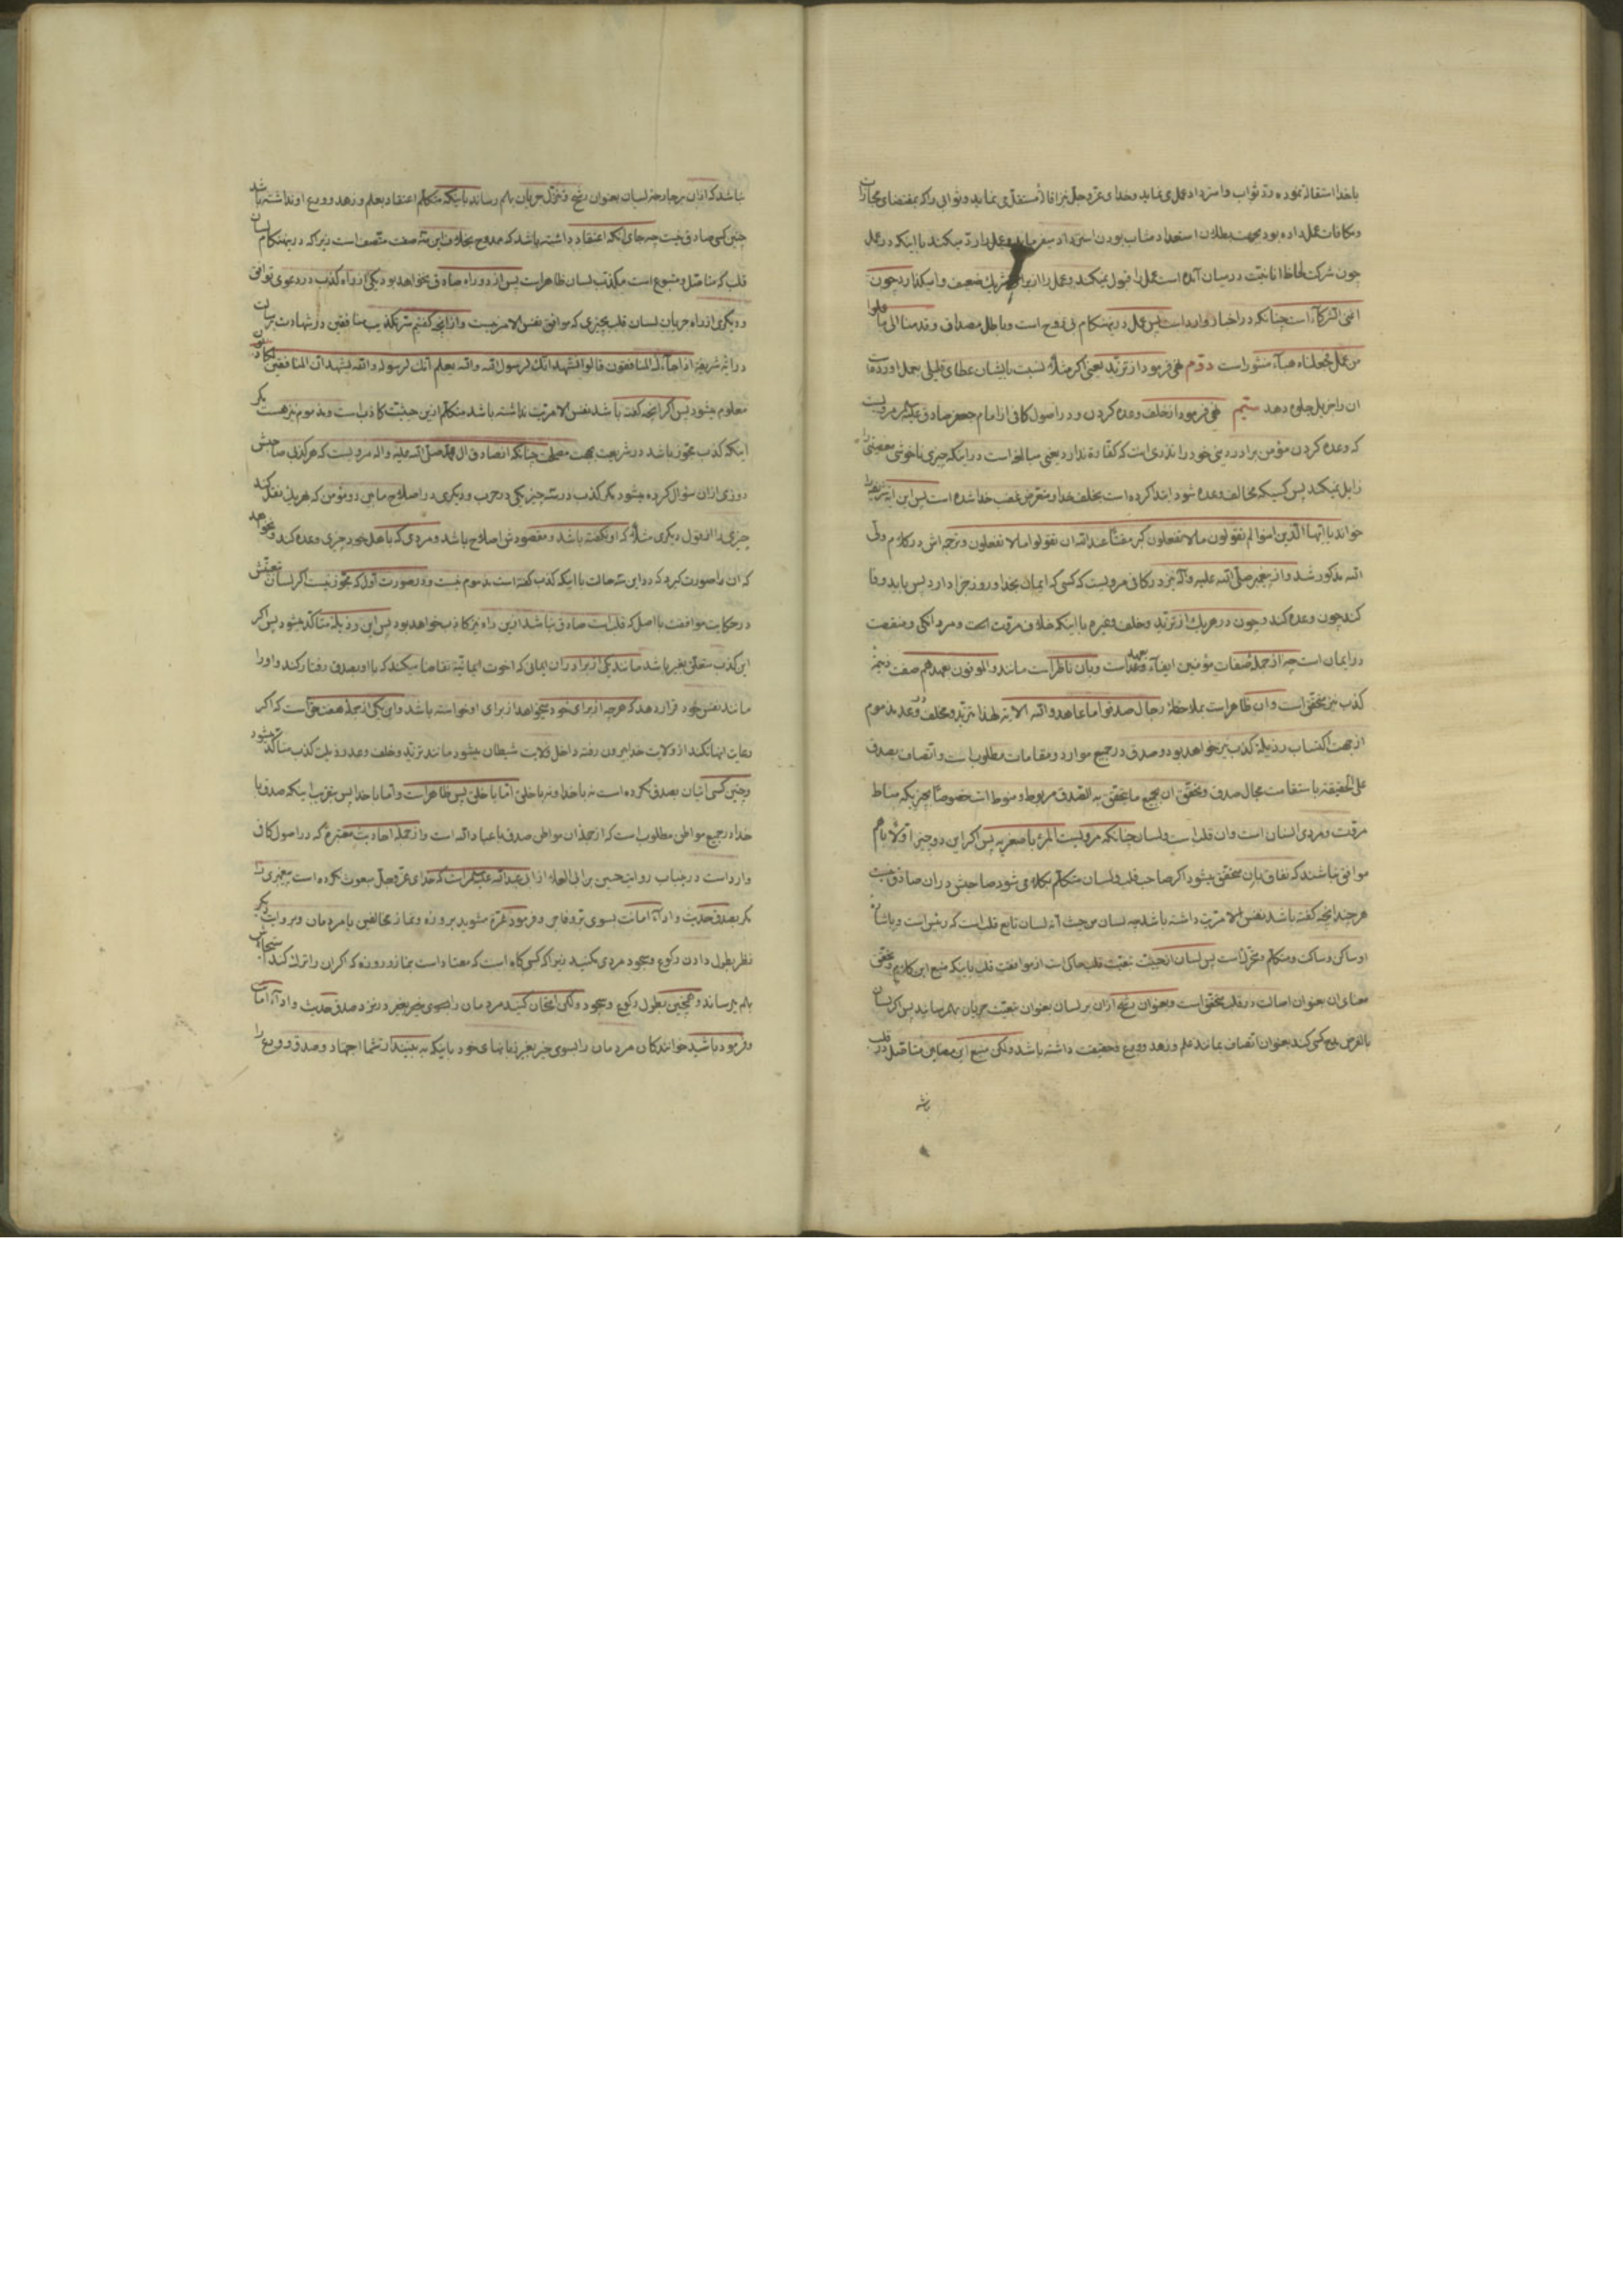 باخدا استقاله نموده ردّ ثواب و استرداد عمل می نماید و خدای عزّ و جلّ نیز اقاله مستقیل می نماید و ثوابی را که بمقتضای مجازات
و مکافات عمل داده بود بجهت بطلان استعداد مثاب بودن استرداد میفرماید و عمل را ردّ میکند با اینکه در عمل
چون شرکت لحاظ انانیّت در میان آمده است عمل را قبول نمیکند و عمل را از برای شریک ضعیف وا میگذارد چون
اغنی الشرکاء است چنانکه در اخبار وارد است پس عمل در ینهنکام بی روح است و باطل مصداق و قدمنا الی ما عملوا
من عمل فجعلناه هبآء منثورا است دوّم نهی فرمود از تزیّد یعنی اگر مثلاً نسبت بایشان عطای قلیلی بعمل آورده است
ان را جزیل جلوه دهد سیّم نهی فرمود از خلف وعده کردن و در اصول کافی از امام جعفر صادق علیه السلام مرویست
که وعده کردن مؤمن برادر دینی خود را نذری است که کفّاره ندارد یعنی مبالغه است در اینکه چیزی ناخوشی معصیتش را
زایل نمیکند پس کسیکه مخالف وعده شود ابتدا کرده است بخلف خدا و متعرض غضب خدا شده است پس این ایه شریفه را
خواند یا ایّها الّذین امنوا لم تقولون ما لا تفعلون کبر مقتاً عند الله ان تقولوا ما لا تفعلون و ترجمه اش در کلام ولیّ
الله مذکور شد و از پیغمبر صلّی الله علیه و آله نیز در کافی مرویست که کسی که ایمان بخدا و روز جزا دارد پس باید وفا
کند چون وعده کند و چون در هریک از تزیّد و خلف وغیره با اینکه خلاف مروّت است و مردانگی و منقصت
در ایمان است چه از جمله صفات مؤمنین ایفآء وعده است و بان ناظر است مانند و الموفون بعهدهم صفت ذمیمه
کذب نیز متحقّق است و ان ظاهر است بملاحظه رجال صدقوا ما عاهدوا الله الایه لهذا تزیّد و خلف وعد مذموم
از جهت اکتساب رذیله کذب نیز خواهد بود و صدق در جمیع موارد و مقامات مطلوب است و اتصاف بصدق
علی الحقیقه باستقامت مجال صدق و تحقّق ان بجمیع ما یتحقق به الصّدق مربوط و منوط است خصوصاً بچیزیکه مناط
مروّت و مردی انسان است وان قلب است و لسان چنانکه مرویست المرء باصغریه پس اگر این دو چیز اوّلا باهم
موافق نباشند که نفاق بان متحقق میشود اگر صاحب قلب و لسان متکلّم بکلامی شود صاحبش در ان صادق نیست
هر چند انچه گفته باشد نفس الامریّت داشته باشد چه لسان من حیث انّه لسان تابع قلب است که رئیس است و باشاره
او ساکن و ساکت و متکلّم و متحرّک است پس لسان از حیثیّت تبعیّت قلب حاکی است از موافقت قلب باینکه منبع این کلام و متحقّق
معنای ان بعنوان اصالت در قلب متحقّق است و بعنوان رشح از ان بر لسان بعنوان تبعیّت جریان بهم رسانید پس اگر لسان
بالفرض مدح کسی کند بعنوان اتصاف بمانند علم و زهد و ورع و حقیقت داشته باشد ولکن منبع این معانی متأصّل در قلب
نباشد که از ان بر جارحه لسان بعنوان رشح و تنزّل جریان بهم رساند باینکه متکلّم اعتقاد بعلم و زهد و ورع او نداشته باشد
چنین کسی صادق نیست چه جای آنکه اعتقاد داشته باشد که ممدوح بخلاف این سه صفت متّصف است زیرا که در ینهنکام لسان
قلب که متاصّل و متبوع است مکذّب لسان ظاهر است پس از دو راه صادق نخواهد بود یکی از راه کذب در دعوی توافق
و دیگری از راه جریان لسان قلب بچیزی که موافق نفس الامر نیست و از انچه گفتیم سرّ تکذیب منافقین در شهادت برسالت
در ایه شریفه اذا جآءک المنافقون قالوا نشهد انّک لرسول الله و الله یعلم انّک لرسوله و الله یشهد ان المنافقین لکاذبون
معلوم میشود پس اگر انچه گفته باشد نفس الامریّت نداشته باشد متکلّم ازین حیثیّت کاذب است و مذموم نیز هست مگر
اینکه کذب مجوّز باشد در شریعت بجهت مصلحتی چنانکه از صادق ال محمد صلّی الله علیه و اله مرویست که هر کذبی صاحبش
روزی از ان سؤال کرده میشود مگر کذب در سه چیز یکی در حرب و دیگری در اصلاح مابین دو مؤمن که هریک نقل کند
چیزی را از قول دیگری مثلاً که او نگفته باشد و مقصودش اصلاح باشد و مردی که با اهل خود چیزی وعده کند و نخواهد
که ان را صورت گیرد که در این سه حالت با اینکه کذب گفته است مذموم نیست و در صورت اول که مجوّز نیست اگر لسان تبعیّتش
در حکایت موافقت با اصل که قلب است صادق نباشد ازین راه نیز کاذب خواهد بود پس این رذیله متأکّد میشود پس اگر
این کذب متعلّق بغیر باشد مانند یکی از برادران ایمانی که اخوت ایمانیّه تقاضا میکند که با او بصدق رفتار کند و او را
مانند نفس خود قرار دهد که هر چه از برای خود میخواهد از برای او خواسته باشد و این یکی از جمله هفت حق است که اگر
رعایت اینها نکند از ولایت خدا بیرون رفته داخل ولایت شیطان میشود مانند تزیّد و خلف وعد رذیلت کذب متأکّد میشود
و چنین کسی اتیان بصدق نکرده است نه باخدا و نه باخلق امّا باخلق پس ظاهر است و امّا باخدا پس بتقریب اینکه صدق با
خدا در جمیع مواطن مطلوب است که از جمله ان مواطن صدق باعباد الله است و از جمله احادیث معتبره که در اصول کافی
وارد است درینباب روایت حسین بن ابی العلاء از ابی عبد الله علیه السلام است که خدای عزّ و جلّ مبعوث نکرده است پیغمبری را
مگر بصدق حدیث و اداء امانت بسوی برّ و فاجر و فرمود غرّه مشوید بروزه و نماز مخالفین یا مردمان و بروایت دیگر
نظر بطول دادن رکوع و سجود مردی مکنید زیرا که کسی گاه است که معتاد است بنماز و روزه که اگر ان را ترک کند استیحاش
بهم رساند و همچنین بطول رکوع و سجود ولکن امتحان کنید مردمان را بصدق حدیث و اداء امانت
و فرمود باشید خوانندگان مردمان را بسوی خیر بغیر زبانهای خود باینکه به بینند از شما اجتهاد و صدق و ورع را